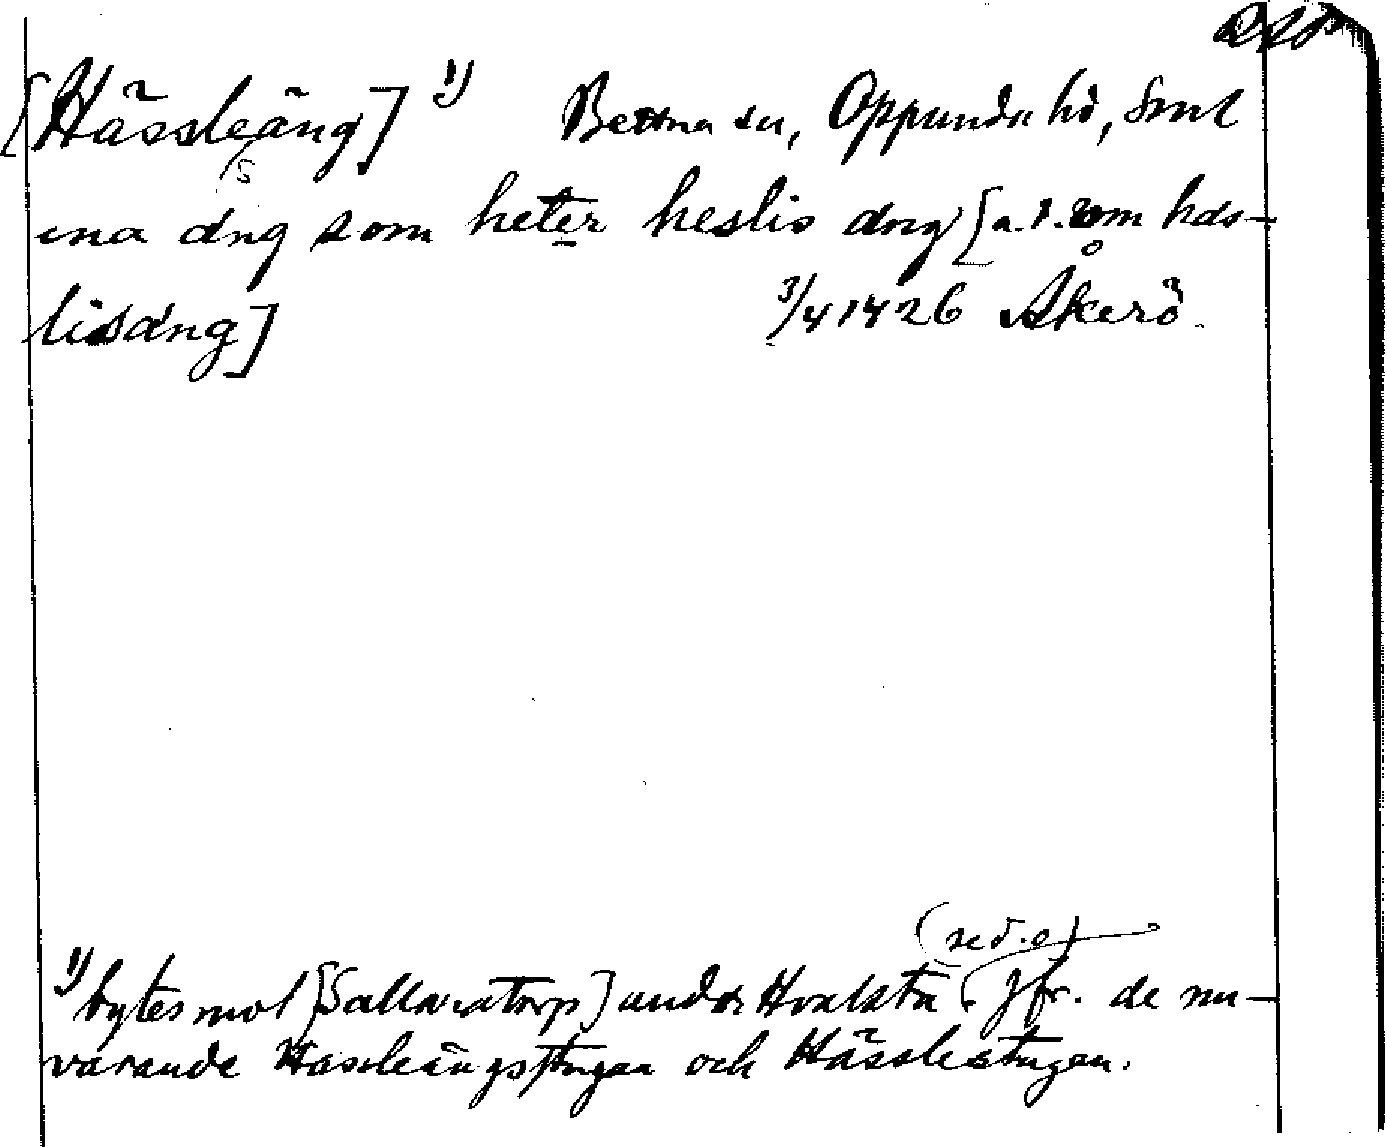 [Hässleäng] 1) Bettna sn, Oppunda hd, Sml
s
ena äng som heter heslis æng [a. t. som hæs-
lisæng] 3/4 1426 Åkerö.
(se d. o)
1) bytes mot [Sallvatorp] under Hvalsta. Jfr. de nu-
varande Hässleängsstugan och Hässlestugan.